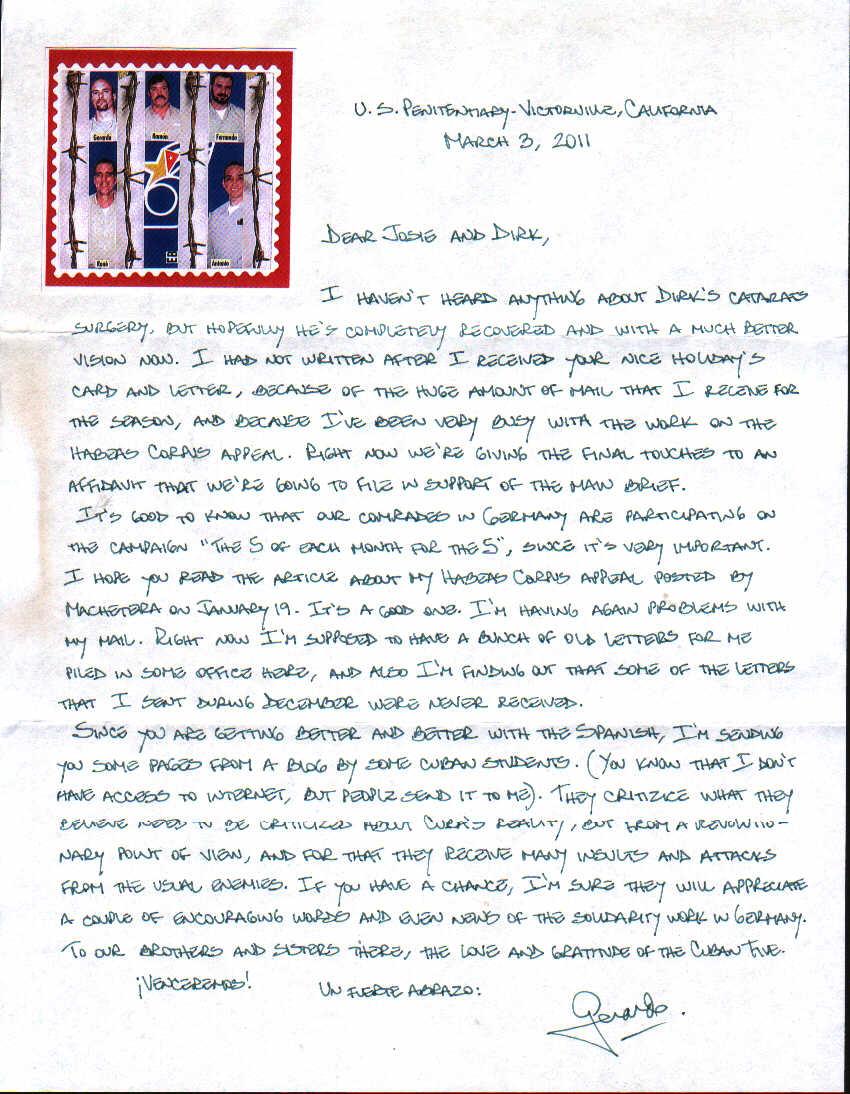 Gerardo
Ramón
Fernando
René
Antonio
U.S. PENITENTIARY-VICTORVILLE, CALIFORNIA
MARCH 3, 2011
DEAR JOSIE AND DIRK,
I HAVEN'T HEARD ANYTHING ABOUT DIRK'S CATARATS
SURGERY, BUT HOPEFULLY HE'S COMPLETELY RECOVERED AND WITH A MUCH BETTER
VISION NOW. I HAD NOT WRITTEN AFTER I RECEIVED YOUR NICE HOLIDAY'S
CARD AND LETTER, BECAUSE OF THE HUGE AMOUNT OF MAIL THAT I RECEIVE FOR
THE SEASON, AND BECAUSE I'VE BEEN VERY BUSY WITH THE WORK ON THE
HABEAS CORPUS APPEAL. RIGHT NOW WE'RE GIVING THE FINAL TOUCHES TO AN
AFFIDAVIT THAT WE'RE GOING TO FILE IN SUPPORT OF THE MAIN BRIEF.
IT'S GOOD TO KNOW THAT OUR COMRADES IN GERMANY ARE PARTICIPATING ON
THE CAMPAIGN "THE 5 OF EACH MONTH FOR THE 5", SINCE IT'S VERY IMPORTANT.
I HOPE YOU READ THE ARTICLE ABOUT MY HABEAS CORPUS APPEAL POSTED BY
MACHETERA ON JANUARY 19. IT'S A GOOD ONE. I'M HAVING AGAIN PROBLEMS WITH
MY MAIL. RIGHT NOW I'M SUPPOSED TO HAVE A BUNCH OF OLD LETTERS FOR ME
PILED IN SOME OFFICE HERE, AND ALSO I'M FINDING OUT THAT SOME OF THE LETTERS
THAT I SENT DURING DECEMBER WERE NEVER RECEIVED.
SINCE YOU ARE GETTING BETTER AND BETTER WITH THE SPANISH, I'M SENDING
YOU SOME PAGES FROM A BLOG BY SOME CUBAN STUDENTS. (YOU KNOW THAT I DON'T
HAVE ACCESS TO INTERNET, BUT PEOPLE SEND IT TO ME). THEY CRITIZICE WHAT THEY
BELIEVE NEED TO BE CRITICIZED ABOUT CUBA'S REALITY, BUT FROM A REVOLUTIO-
NARY POINT OF VIEW, AND FOR THAT THEY RECEIVE MANY INSULTS AND ATTACKS
FROM THE USUAL ENEMIES. IF YOU HAVE A CHANCE, I'M SURE THEY WILL APPRECIATE
A COUPLE OF ENCOURAGING WORDS AND EVEN NEWS OF THE SOLIDARITY WORK IN GERMANY.
TO OUR BROTHERS AND SISTERS THERE, THE LOVE AND GRATITUDE OF THE CUBAN FIVE.
¡VENCEREMOS! UN FUERTE ABRAZO:
Gerardo.